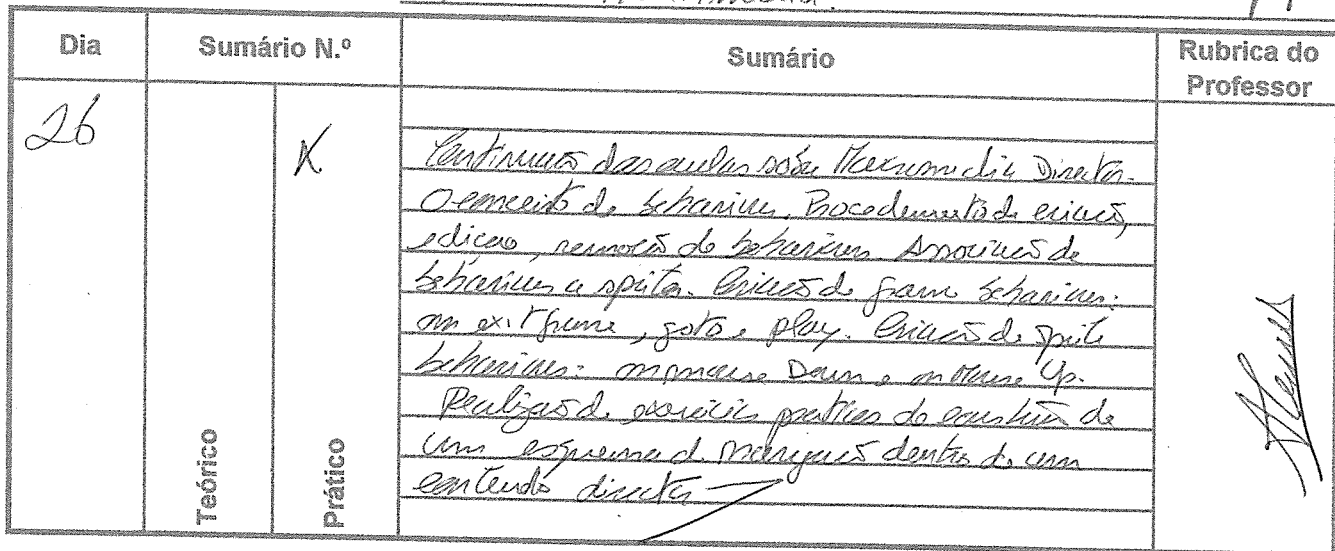 Dia Sumário N.º Sumário Rubrica do Professor
26 X
Continuação das aulas sobre Macromedia Director.
O conceito de behaviour. Procedimento de criação,
edição, remoção de behaviours. Associação de
behaviours a sprites. Criação de frame behaviours:
on exitframe, goto e play. Criação de sprite
behaviours: on mouse Down e on Mouse Up.
Realização de exercícios práticos de construção de
um esquema de navegação dentro de um
conteúdo director
Teórico
Prático